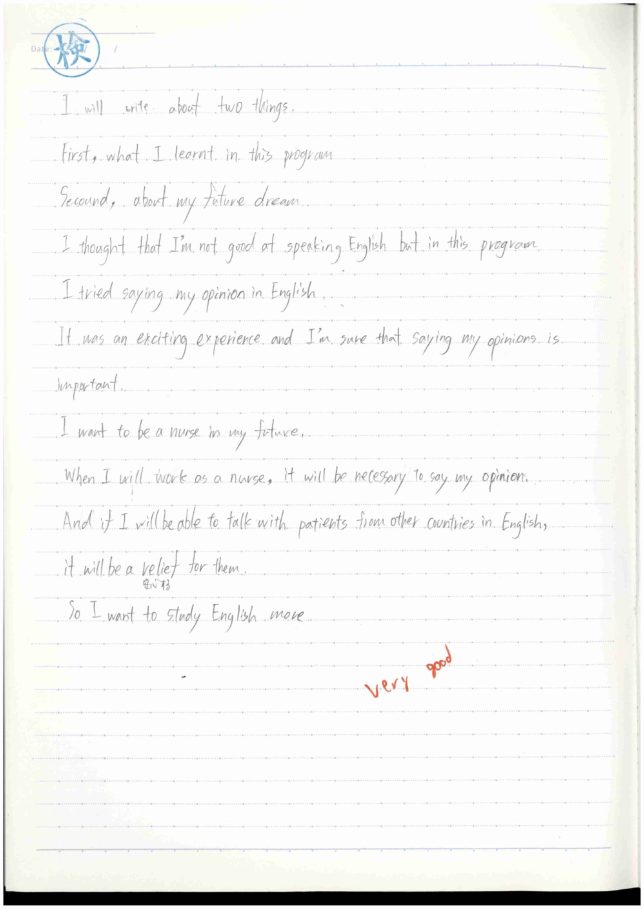 検
Date: / /
I will write about two things.
First, what I learnt in this program
Secound, about my future dream
I thought that I'm not good at speaking English but in this program
I tried saying my opinion in English.
It was an exciting experience and I'm sure that saying my opinions is
important.
I want to be a nurse in my future.
When I will work as a nurse, it will be necessary to say my opinion.
And if I will be able to talk with patients from other countries in English,
it will be a relief for them.
So I want to study English more
very good